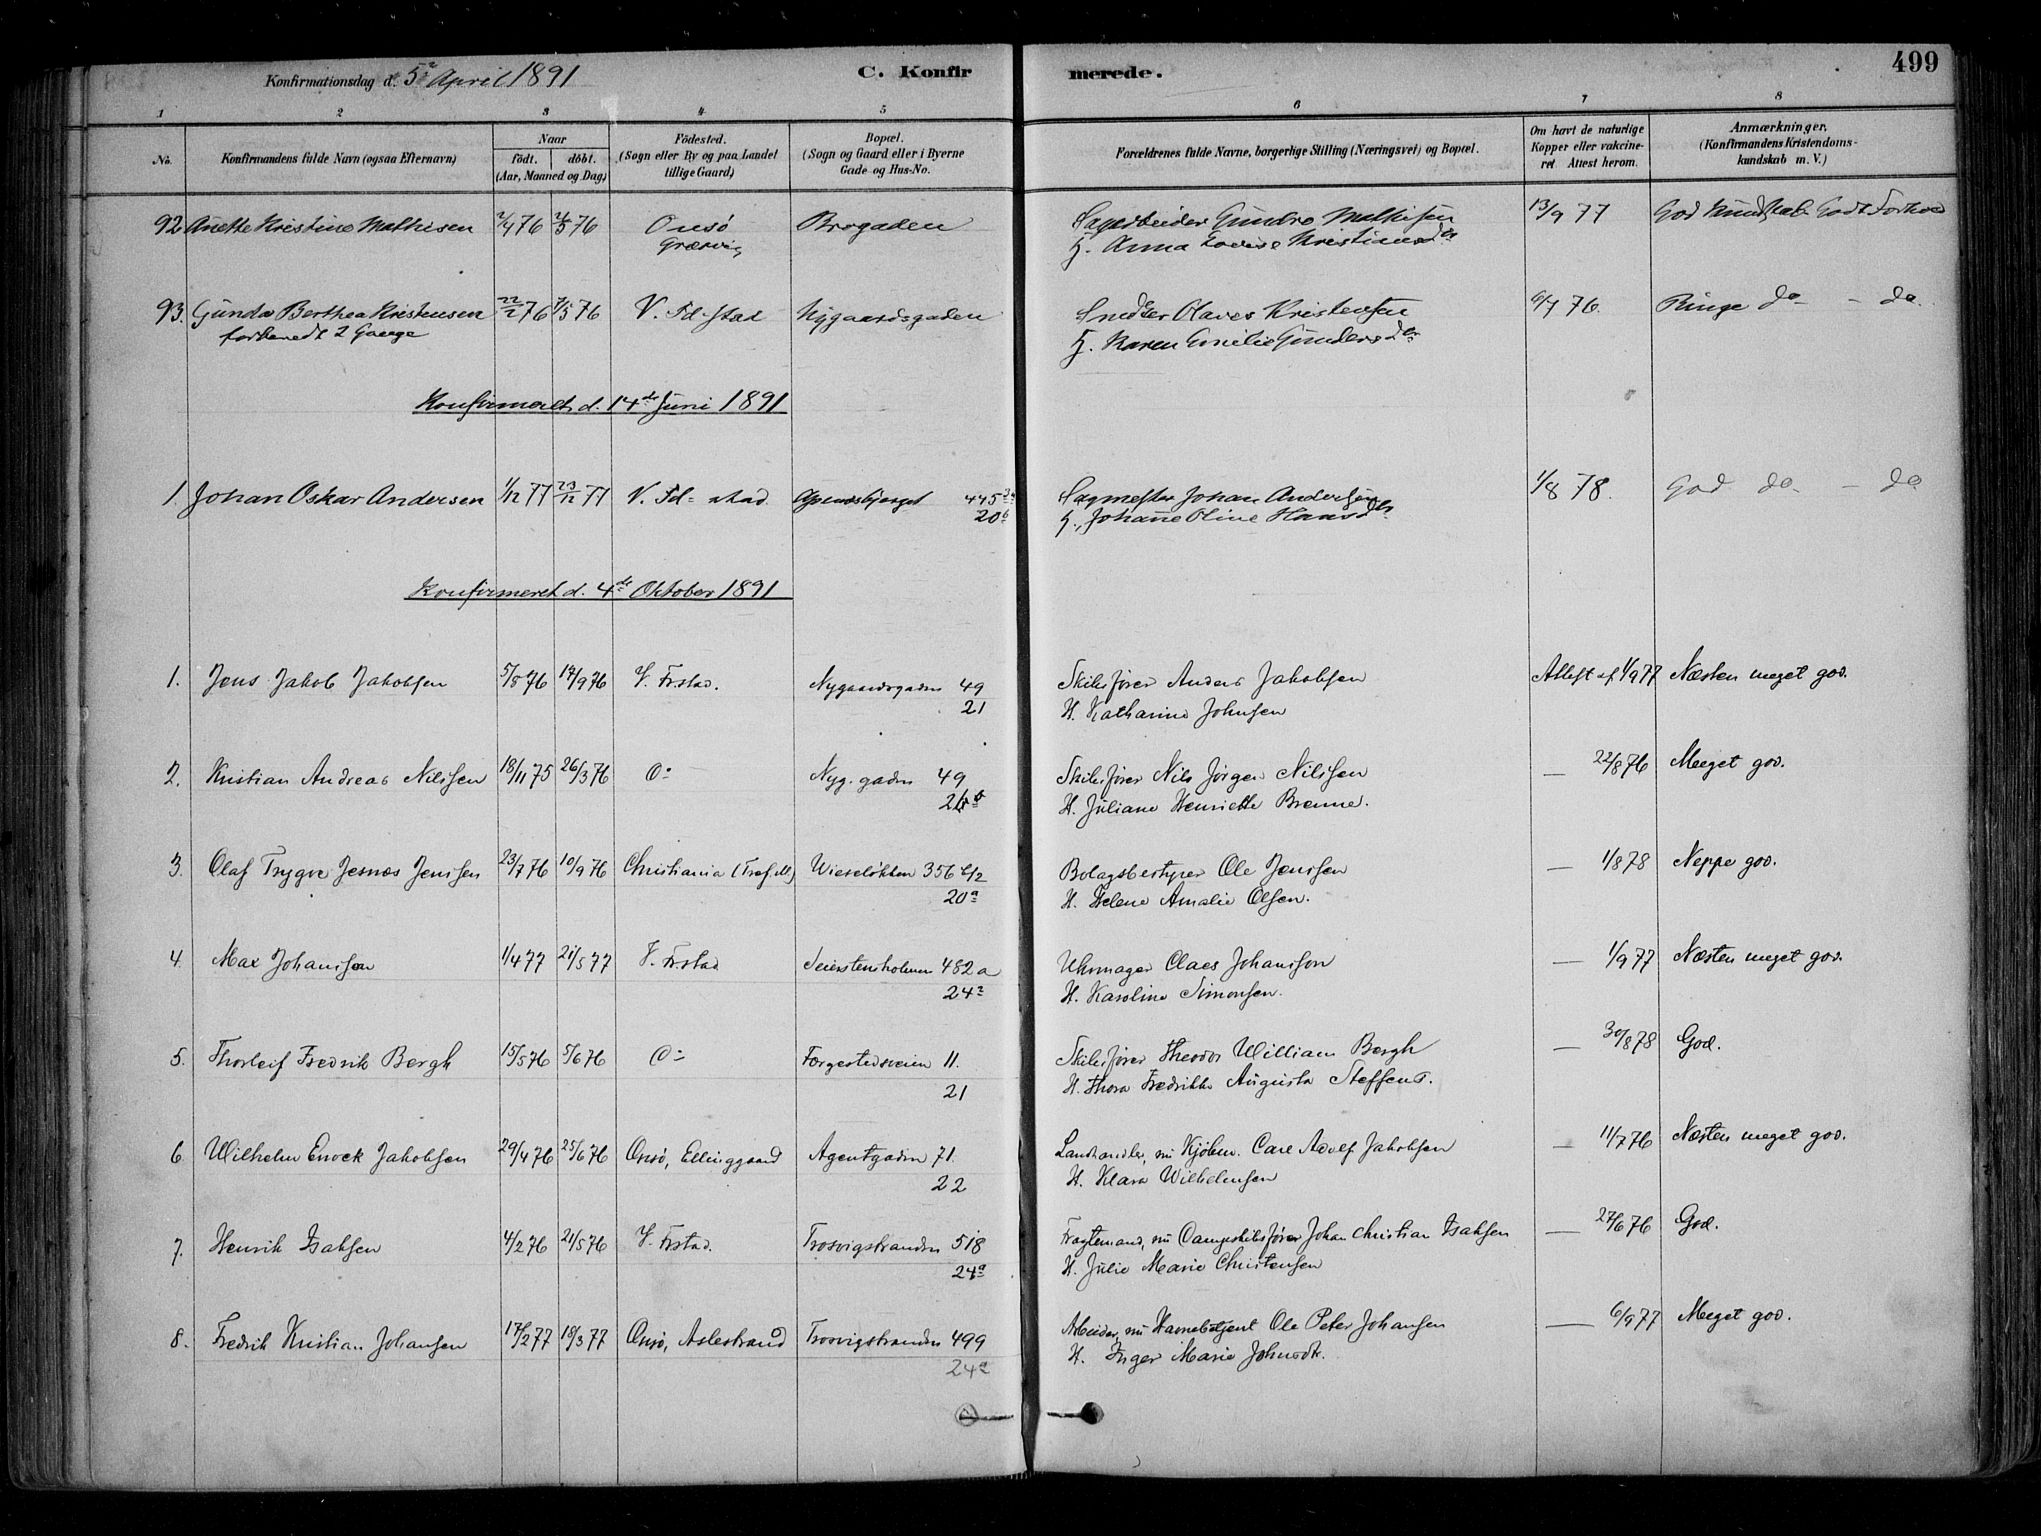 Konfirmationsdag d. 5. April 1891
C. Konfirmerede.
499
1 2 3 4 5 6 7 8
No.
Konfirmandens fulde Navn (ogsaa Efternavn)
Naar
födt. döbt.
(Aar, Maaned og Dag)
Födested.
(Sogn eller By og paa Landet
tillige Gaard)
Bopæl.
(Sogn og Gaard eller i Byerne
Gade og Hus-No.
Forældrenes fulde Navne, borgerlige Stilling (Næringsvei) og Bopæl.
Om havt de naturlige
Kopper eller vakcine-
ret Attest herom.
Anmærkninger.
(Konfirmandens Kristendoms-
kundskab m. V.)
92 Anette Kristine Mathisen 2/4 76 76 Onsö Brogaden Sagarbeider Gundro Mathisen 13/9 77 God Kundskab Godt Forhold
Græsvig H. Anna Lovise Kristiansdr
93. Gunda Berthea Kristensen 22/2 76 7/5 76 V. Fd-stad Nygaardsgaden Olaves Kristensen 6/7 76. Ringe do - do.
forberedt 2 Gange H. Karen Emilie Gundersdr
Konfirmeret d. 14de Juni 1891
1 Johan Oskar Andersen 1/12 77 23/12 77 V. Fd-stad. 445 Sagmester Johan Andersen 1/8 78. God do - do
20b H. Johanne Oline Hansdr
Konfirmeret d. 4de Oktober 1891
1. Jens Jakob Jakobsen 5/8 76 17/9 76 V. Frstad. Nygaardsgaden 49 Skibsfører Anders Jakobsen Attest af 1/9 77 Næsten meget god.
21 H. Katharina Johnsen
2. Kristian Andreas Nilssen 18/11 75 26/3 76 Do Nyg. gaden 49 Skibsfører Nils Jørgen Nilssen — 22/8 76 Meget god.
H. Juliane Henriette Brenne.
3. Olaf Trygve Jesnæs Jenssen 23/7 76 10/9 76 Christiania (Tref.M.) Wieseløkken 356 Bolagsbestyrer Ole Jenssen — 1/8 78 Neppe god.
20a H. Helene Amalie Olsen.
4. Max Johanssen 1/4 77 21/5 77 V. Frstad Seierstensholmen 482a Uhrmager Claes Johansson — 1/9 77 Næsten meget god.
24a H. Karoline Simonsen.
5. Thorleif Fredrik Bergh 15/5 76 5/6 76 Do Færgestedsveien 11. Skibsfører Theodor William Bergh — 30/8 78 God.
21 H. Thora Fredrikke Augusta Steffens.
6 Wilhelm Enock Jakobsen 29/4 76 25/6 76 Onsø, Ellinggaard Agentgaden 71. Landhandler, nu Kjøbm. Carl Adolf Jakobsen — 11/7 76 Næsten meget god.
22 H. Klara Wilhelmsen
7. Henrik Isaksen 4/2 76 21/5 76 V. Frstad. Trosvigstranden 518 Fragtemand, nu Dampskibsfører Johan Christian Isaksen — 27/6 76 God.
24a H. Julie Marie Christensen
8. Fredrik Kristian Johansen 17/2 77 18/3 77 Onsø, Aslestrand Trosvigstranden 499 Arbeider, nu Havnebetjent Ole Peter Johansen — 6/9 77 Meget god.
24a H. Inger Marie Johnsdtr.